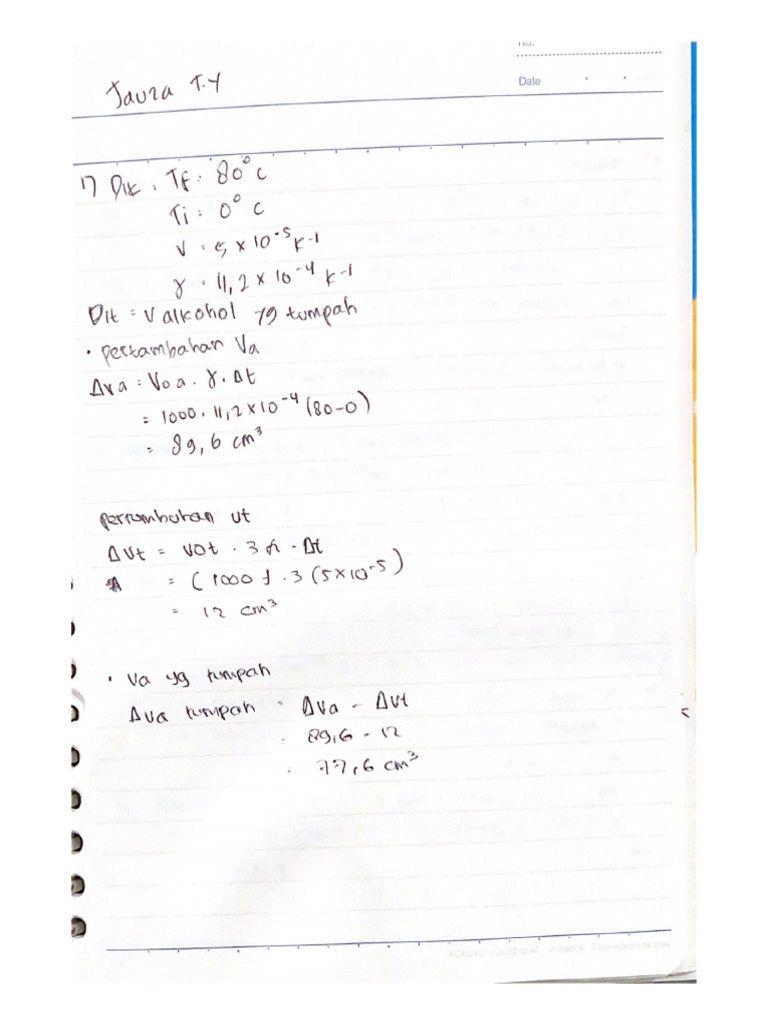 No.
Date
Jauza T.Y
1) Dik : Tf : 80° C
Ti : 0° C
V : 5 x 10⁻⁵ K-1
γ : 11,2 x 10⁻⁴ K-1
Dit : V alkohol yg tumpah
• pertambahan Va
Δva : Vo a . γ . Δt
= 1000 . 11,2 x 10⁻⁴ (80-0)
= 89,6 cm³
pertambahan Vt
ΔVt = Vot . 3 α . Δt
= (1000) . 3 (5x10⁻⁵)
= 12 cm³
• Va yg tumpah
ΔVa tumpah = ΔVa - ΔVt
= 89,6 - 12
= 77,6 cm³